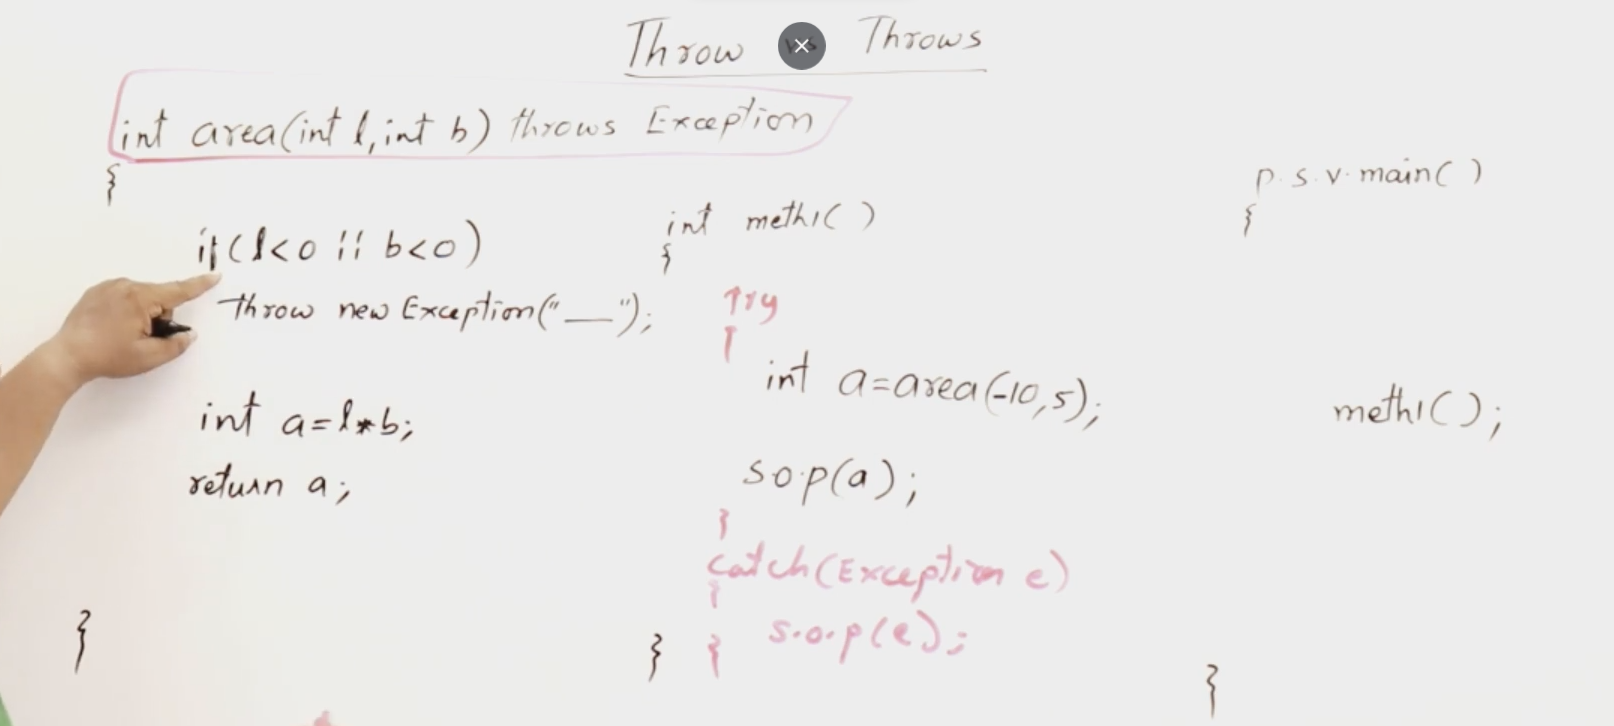 Throw vs Throws
int area(int l, int b) throws Exception
{
if(l<0 || b<0)
throw new Exception("__");
int a=l*b;
return a;
}
int meth1( )
{
Try
{
int a=area(-10,5);
s.o.p(a);
}
catch(Exception e)
{
s.o.p(e);
}
}
p.s.v.main( )
{
meth1( );
}